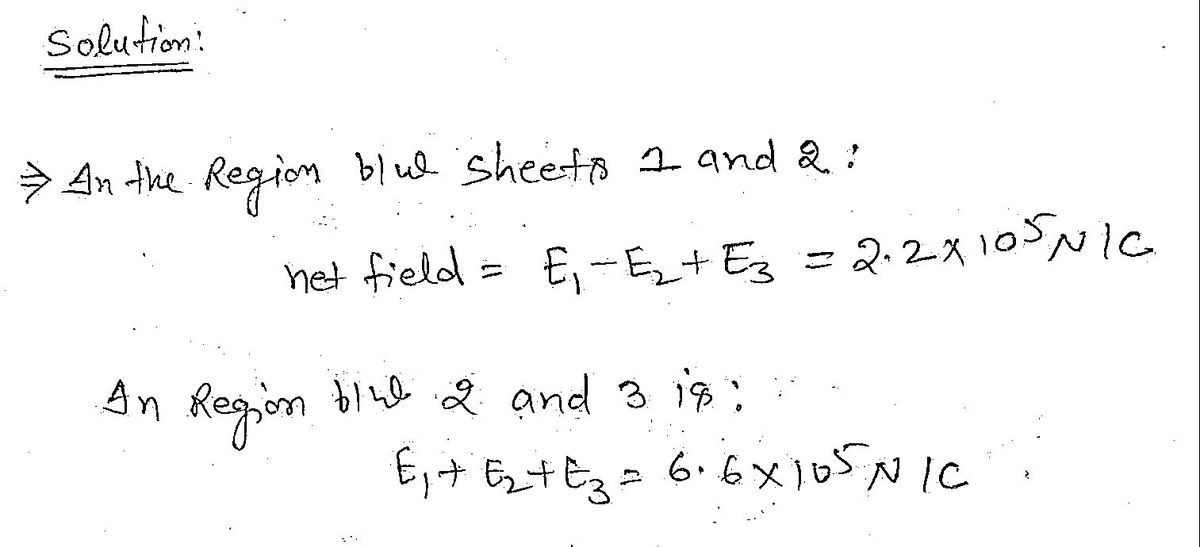 Solution:
⇒ In the Region b/w sheets 1 and 2:
net field = E₁ - E₂ + E₃ = 2.2 x 10⁵ N/C
In Region b/w 2 and 3 is:
E₁ + E₂ + E₃ = 6.6 x 10⁵ N/C